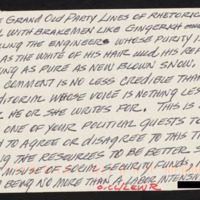 GRAND OLD PARTY LINES OF RHETORIC
WITH BRAKEMEN LIKE GINGERICH
THE ENGINEERS WHOSE PURITY
AS THE WHITE OF HIS HAIR AND HIS
AS PURE AS NEW BLOWN SNOW.
COMMENT IS NO LESS CREDIBLE THAN
WHOSE VOICE IS NOTHING LESS
HE OR SHE WRITES FOR. THIS IS
ONE OF YOUR POLITICAL GUESTS TO
TO AGREE OR DISAGREE TO THIS
THE RESOURCES TO BE BETTER
MISUSE OF SOCIAL SECURITY FUNDS,
BEING NO MORE THAN A LABOR INTENSIVE